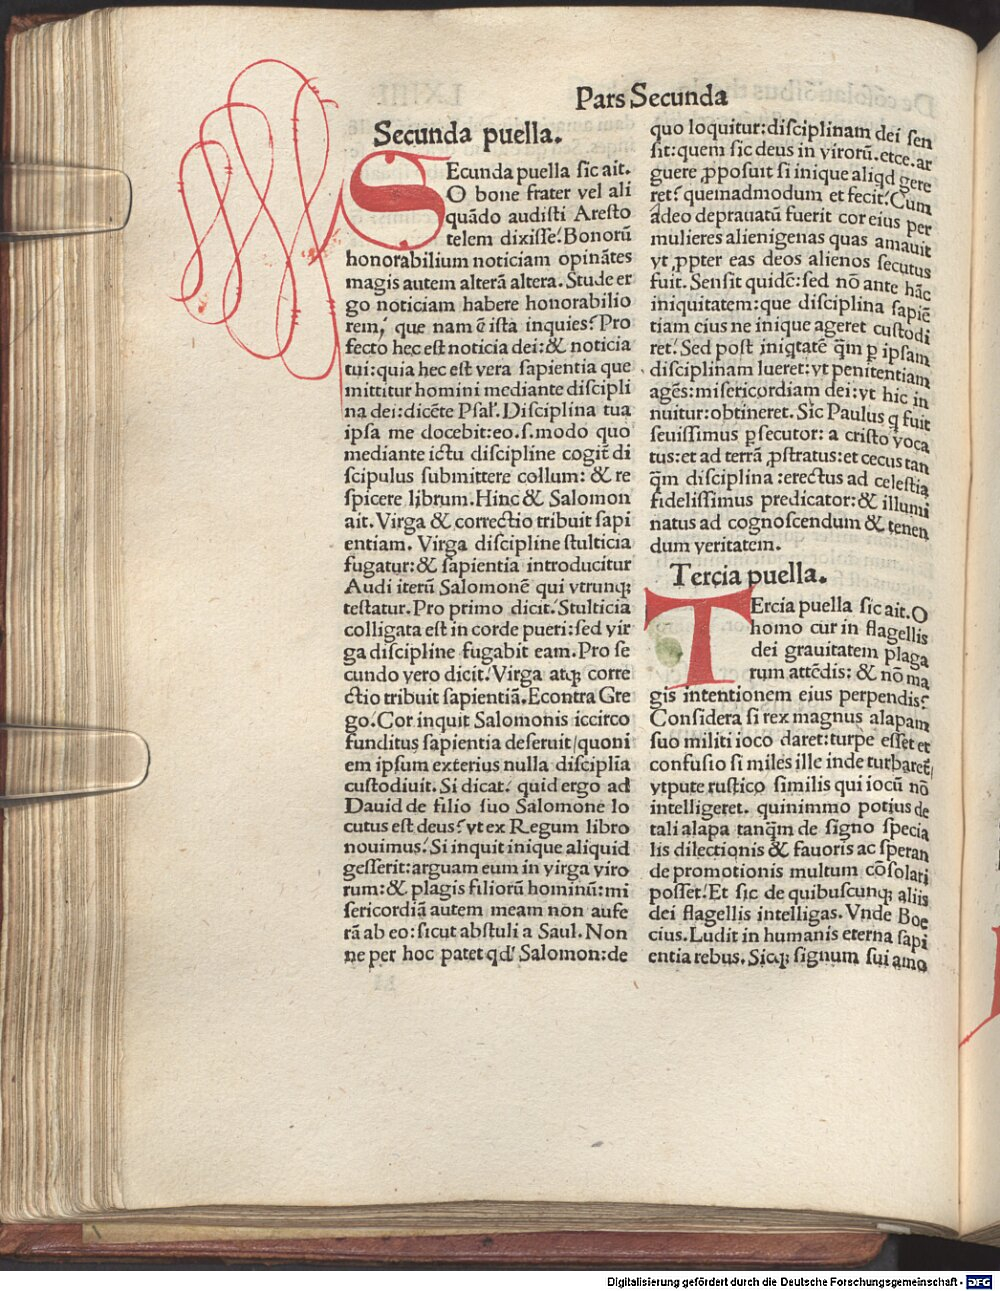 Pars Secunda
Secunda puella.
SEcunda puella sic ait.
O bone frater vel ali
quãdo audisti Aresto
telem dixisse? Bonorũ
honorabilium noticiam opinãtes
magis autem alterã altera. Stude er
go noticiam habere honorabilio
rem, que nam ẽ ista inquies? Pro
fecto hec est noticia dei: & noticia
tui: quia hec est vera sapientia que
mittitur homini mediante discipli
na dei: dicẽte Psal'. Disciplina tua
ipsa me docebit: eo. s. modo quo
mediante ictu discipline cogit̃ di
scipulus submittere collum: & re
spicere librum. Hinc & Salomon
ait. Virga & correctio tribuit sapi
entiam. Virga discipline stulticia
fugatur: & sapientia introducitur
Audi iterũ Salomonẽ qui vtrunqꝫ
testatur. Pro primo dicit. Stulticia
colligata est in corde pueri: sed vir
ga discipline fugabit eam. Pro se
cundo vero dicit. Virga atqꝫ corre
ctio tribuit sapientiã. Econtra Gre
go. Cor inquit Salomonis iccirco
funditus sapientia deseruit/quoni
em ipsum exterius nulla disciplia
custodiuit. Si dicat. quid ergo ad
Dauid de filio suo Salomone lo
cutus est deus? vt ex Regum libro
nouimus. Si inquit inique aliquid
gesserit: arguam eum in virga viro
rum: & plagis filiorũ hominũ: mi
sericordiã autem meam non aufe
rã ab eo: sicut abstuli a Saul. Non
ne per hoc patet qd' Salomon: de
quo loquitur: disciplinam dei sen
sit: quem sic deus in virorũ. etce. ar
guere ꝓposuit si inique aliqd gere
ret? quemadmodum et fecit. Cum
adeo deprauatũ fuerit cor eius per
mulieres alienigenas quas amauit
vt ꝓpter eas deos alienos secutus
fuit. Sensit quidẽ: sed nõ ante hãc
iniquitatem: que disciplina sapiẽ
tiam eius ne inique ageret custodi
ret. Sed post iniqtatẽ q̃m ꝑ ipsam
disciplinam lueret: vt penitentiam
agẽs: misericordiam dei: vt hic in
nuitur: obtineret. Sic Paulus q fuit
seuissimus ꝑsecutor: a cristo voca
tus: et ad terrã ꝓstratus: et cecus tan
q̃m disciplina: erectus ad celestia
fidelissimus predicator: & illumi
natus ad cognoscendum & tenen
dum veritatem.
Tercia puella.
TErcia puella sic ait. O
homo cur in flagellis
dei grauitatem plaga
rum attẽdis: & nõ ma
gis intentionem eius perpendis?
Considera si rex magnus alapam
suo militi ioco daret: turpe esset et
confusio si miles ille inde turbaret̃/
vtpute rustico similis qui iocũ nõ
intelligeret. quinimmo potius de
tali alapa tanq̃m de signo specia
lis dilectionis & fauoris ac speran
de promotionis multum cõsolari
posset. Et sic de quibuscunqꝫ aliis
dei flagellis intelligas. Vnde Boe
cius. Ludit in humanis eterna sapi
entia rebus. Sicqꝫ signum sui amo
Digitalisierung gefördert durch die Deutsche Forschungsgemeinschaft - DFG